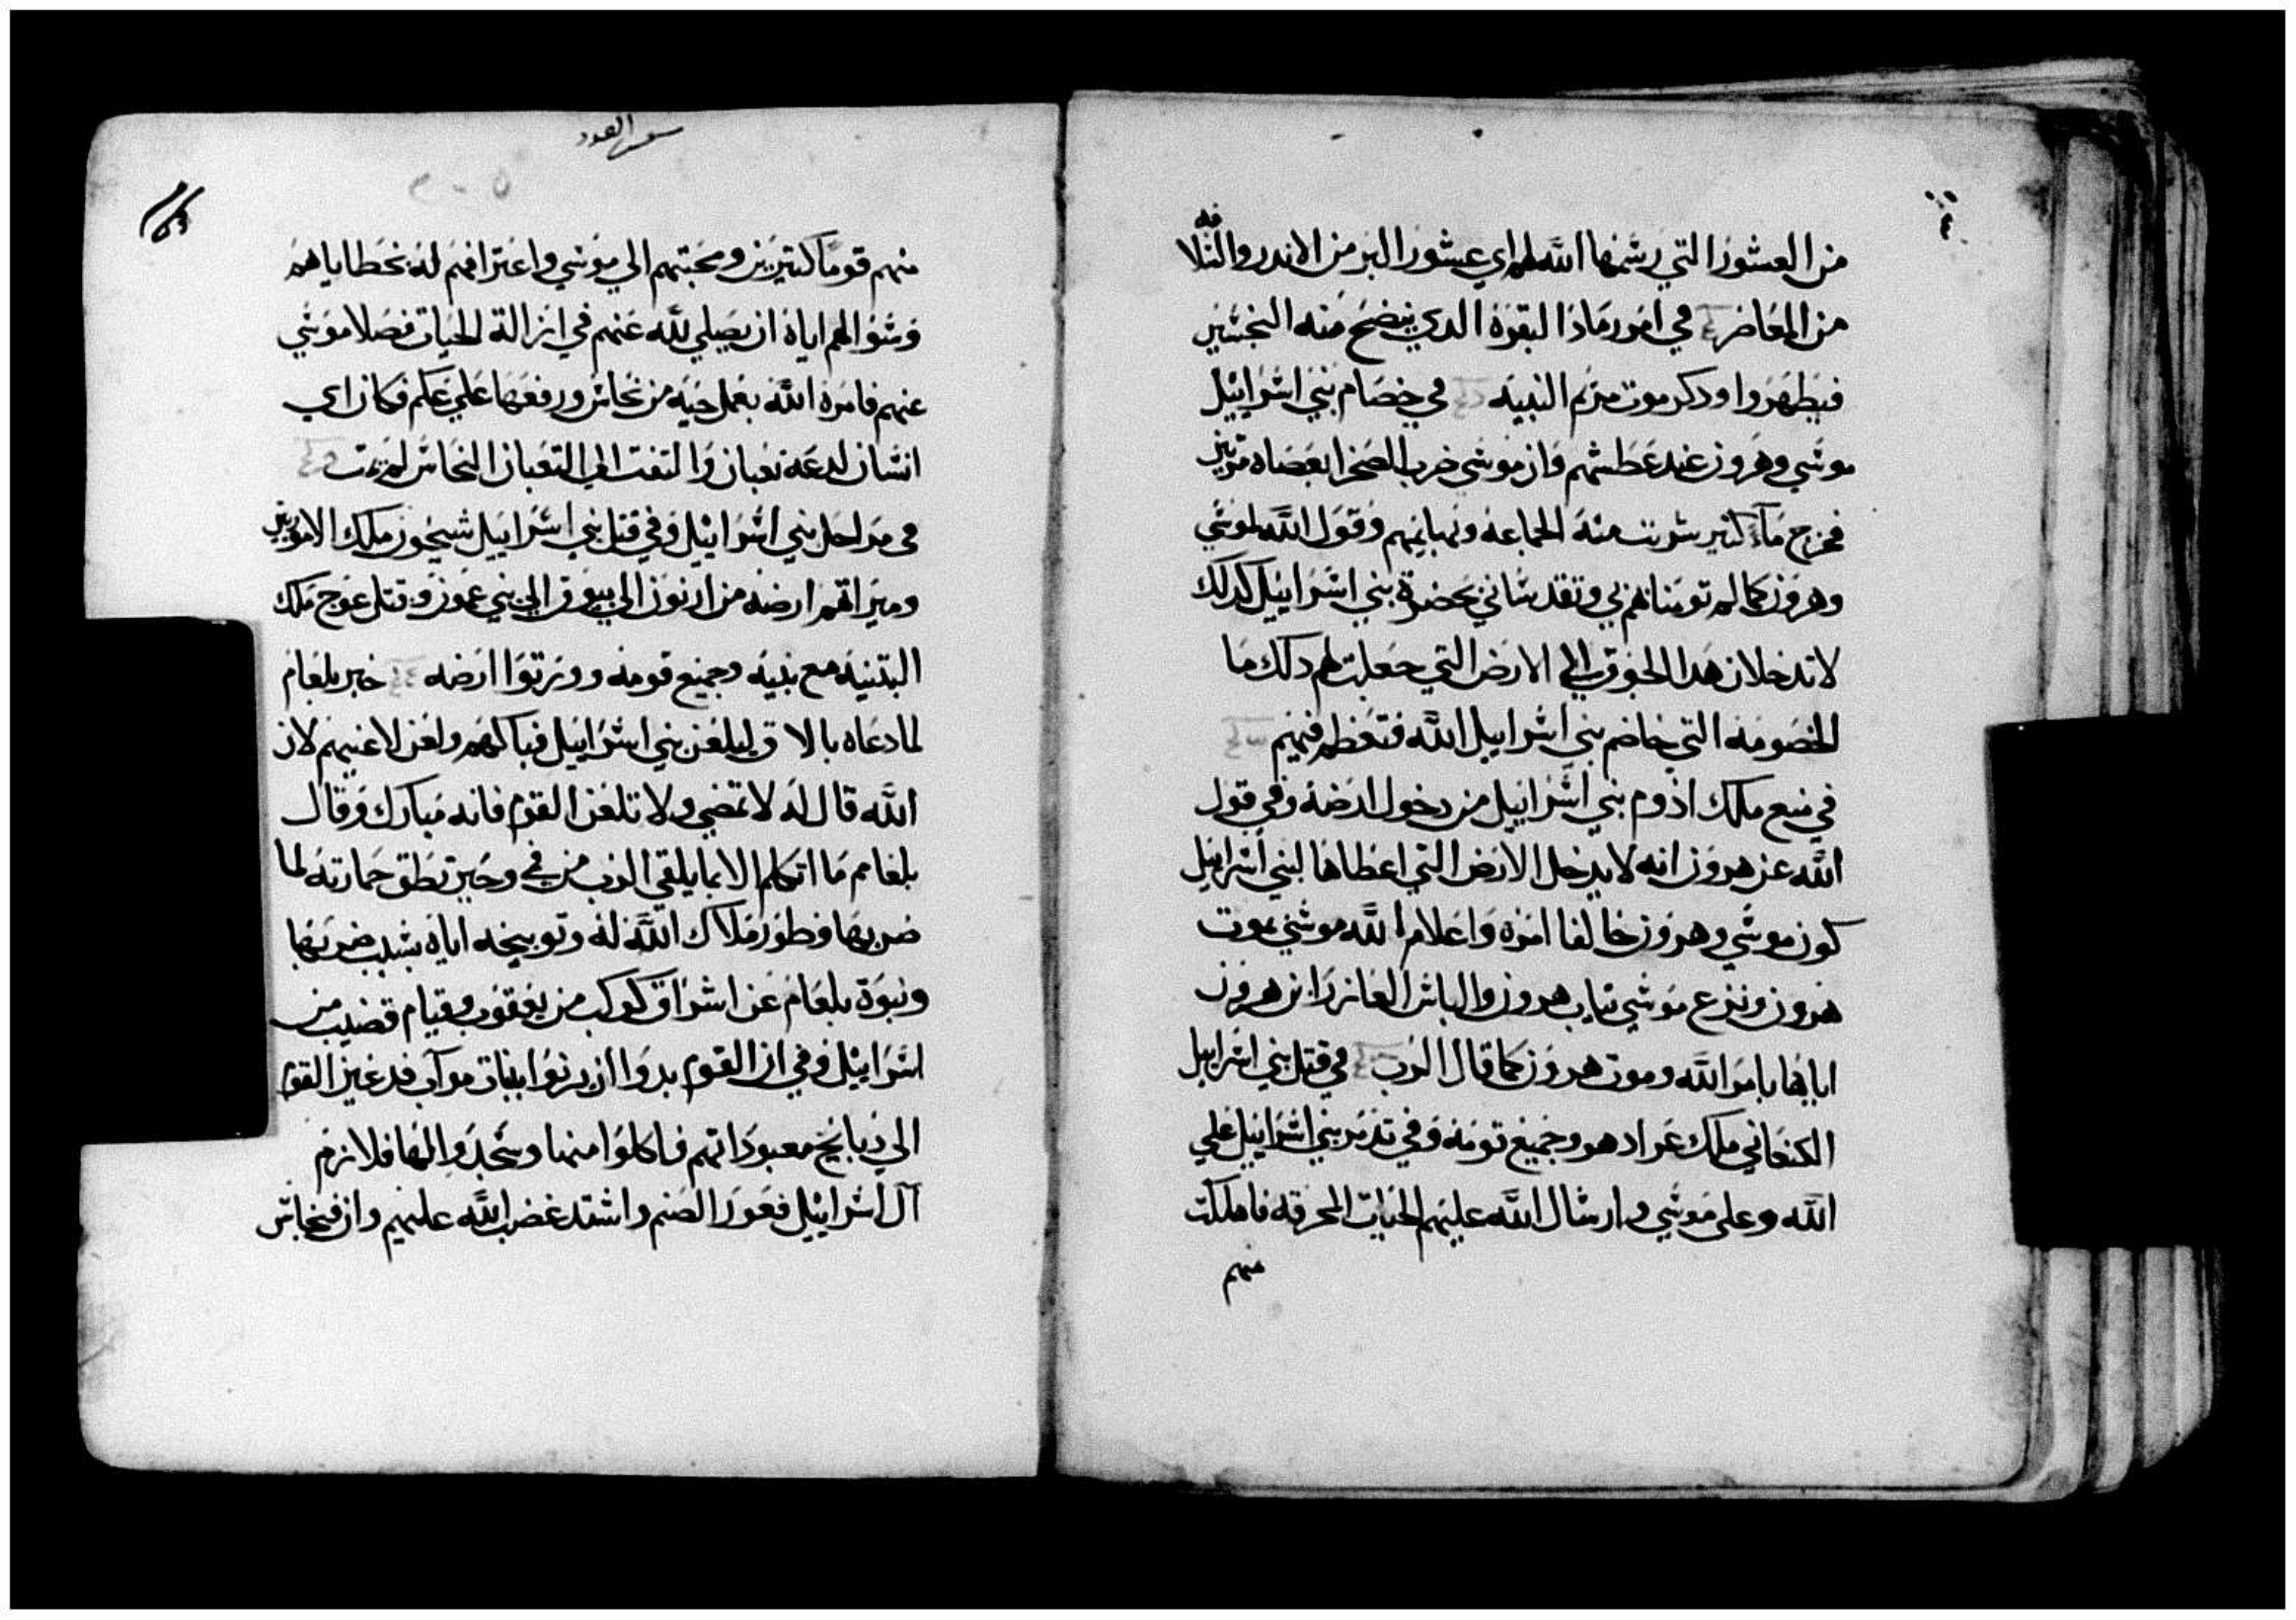 من العشور التي رسمها الله لهم اي عشور البر من الاندر والسلافه
من المعاصر في امور رماد البقره الدي ينضح منه النجسين
فيطهروا ودكر موت مريم النبيه في خصام بني اسراييل
موسي وهرون عند عطشهم وان موسي ضرب الصخرا بعصاه مرتين
فخرج ماء كتير شربت منه الجماعه وبهايمهم وقول الله لموسي
وهرون كما لم تومنا بي وتقدساني بحضرة بني اسراييل كدلك
لا تدخلان هدا الجوق الي الارض التي جعلت لهم دلك ما
الخصومه التي خاصم بني اسراييل الله فتعظم فيهم
في منع ملك ادوم بني اسراييل من دخول ارضه وفي قول
الله عن هرون انه لا يدخل الارض التي اعطاها لبني اسراييل
كون موسي وهرون خالفا امره واعلام الله موسي بموت
هرون ونزع موسي تياب هرون والباس العازر ابن هرون
اياها بامر الله وموت هرون كما قال الرب في قتل بني اسراييل
الكنعاني ملك عراد هو وجميع قومه وفي تدمر بني اسراييل علي
الله وعلي موسي وارسال الله عليهم الحيات المحرقه فاهلكت
منهم
سفر العدد
منهم قوما كتيرين ومجيتهم الي موسي واعترافهم له بخطاياهم
وسوالهم اياه ان يصلي لله عنهم في ازالة الحيات فصلا موسي
عنهم فامره الله بعمل حيه من نحاس ورفعها علي علم فكان اي
انسان لدعه تعبان والتفت الي التعبان النحاس لم يمت
في مراحل بني اسراييل وفي قتل بني اسراييل سيحون ملك الاموريين
وميراتهم ارضه من ارنون الي يبوق الي بني عمون وقتل عوج ملك
البتنيه مع بنيه وجميع قومه وورتوا ارضه خبر بلعام
لما دعاه بالاق ليلعن بني اسراييل فباركهم ولعن لاعنيهم لان
الله قال له لا تمضي ولا تلعن القوم فانه مبارك وقال
بلعام ما اتكلم الا بما يلقي الرب من في وحين نطق حمارته لما
ضربها وظهور ملاك الله له وتوبيخه اياه بسبب ضربها
ونبوة بلعام عن اشراق كوكب من يعقوب وقيام قضيب من
اسراييل وفي ان القوم بدوا ان يزنوا ببنات مواب فدعين القوم
الي دبايح معبوداتهم فاكلوا منها وسجدوا لها فلازم
آل اسراييل فعور الصنم واشتد غضب الله عليهم وان فينحاس